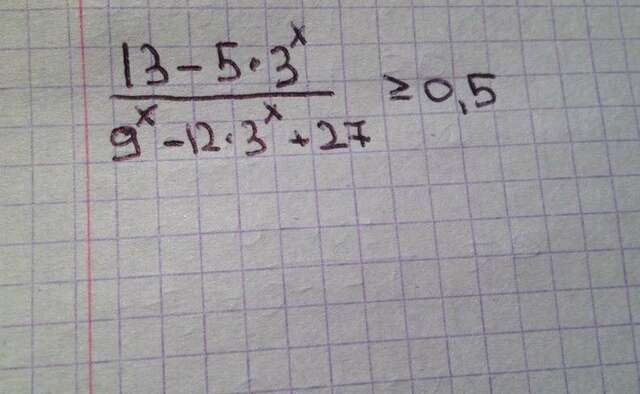 13 - 5·3^x
9^x - 12·3^x + 27
≥ 0,5